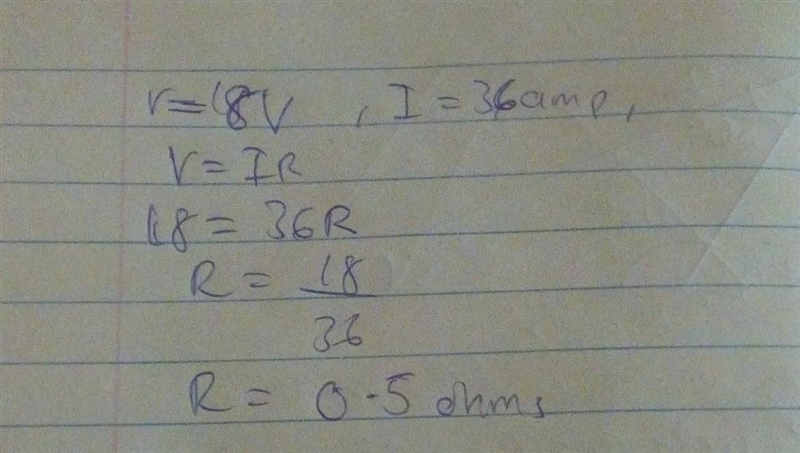 V = 18V , I = 36 amp,
V = IR
18 = 36R
R = 18
36
R = 0.5 ohms